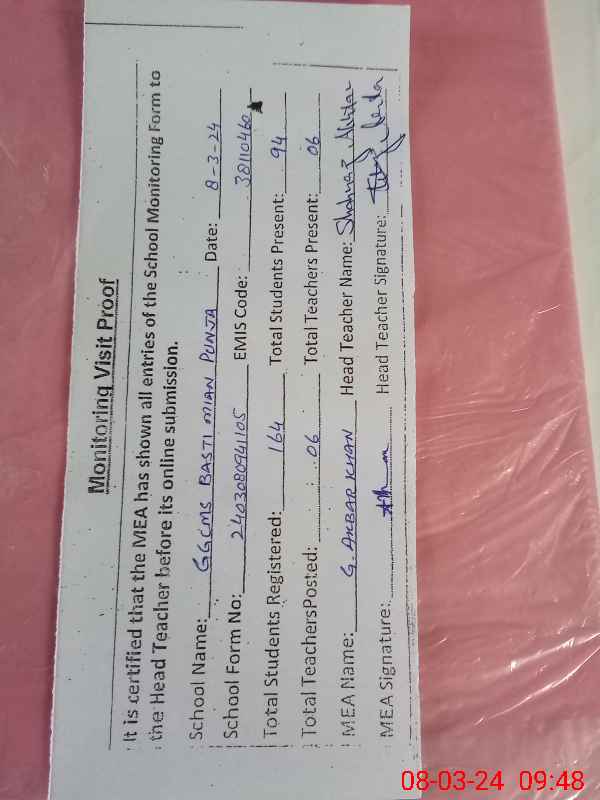 Monitoring Visit Proof
It is certified that the MEA has shown all entries of the School Monitoring Form to
the Head Teacher before its online submission.
School Name: GGCMS BASTI MIAN PUNJA Date: 8-3-24
School Form No: 2403080941105 EMIS Code: 38110460
Total Students Registered: 164 Total Students Present: 94
Total TeachersPosted: 06 Total Teachers Present: 06
MEA Name: G. AKBAR KHAN Head Teacher Name: Shahnaz Akhtar
MEA Signature: Head Teacher Signature:
08-03-24 09:48